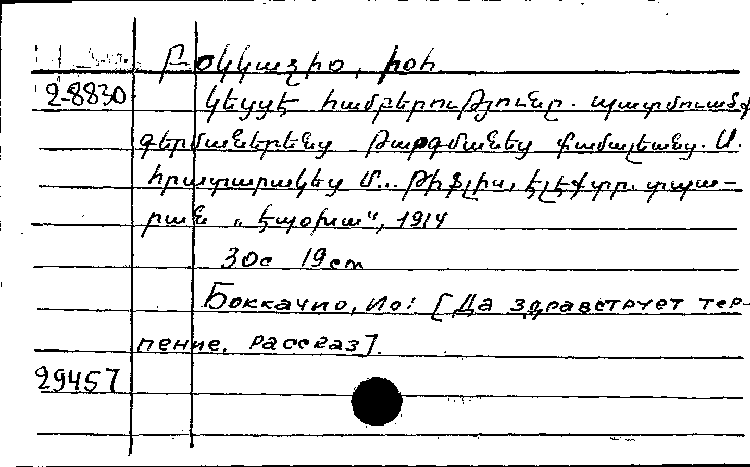 Բոկկաչիո, Իօհ
2-8830
կեցցէ համբերութիւնը. պատմուածք
գերմաներենից թարգմանեց Քամալեանց. Ա.
հրատարակեց Մ... Թիֆլիս, էլէքտր. տպա-
րան „Էպօխա“, 1914
30с 19см
Боккачио, Ио: [Да здравствует тер-
пение. Рассказ].
29457